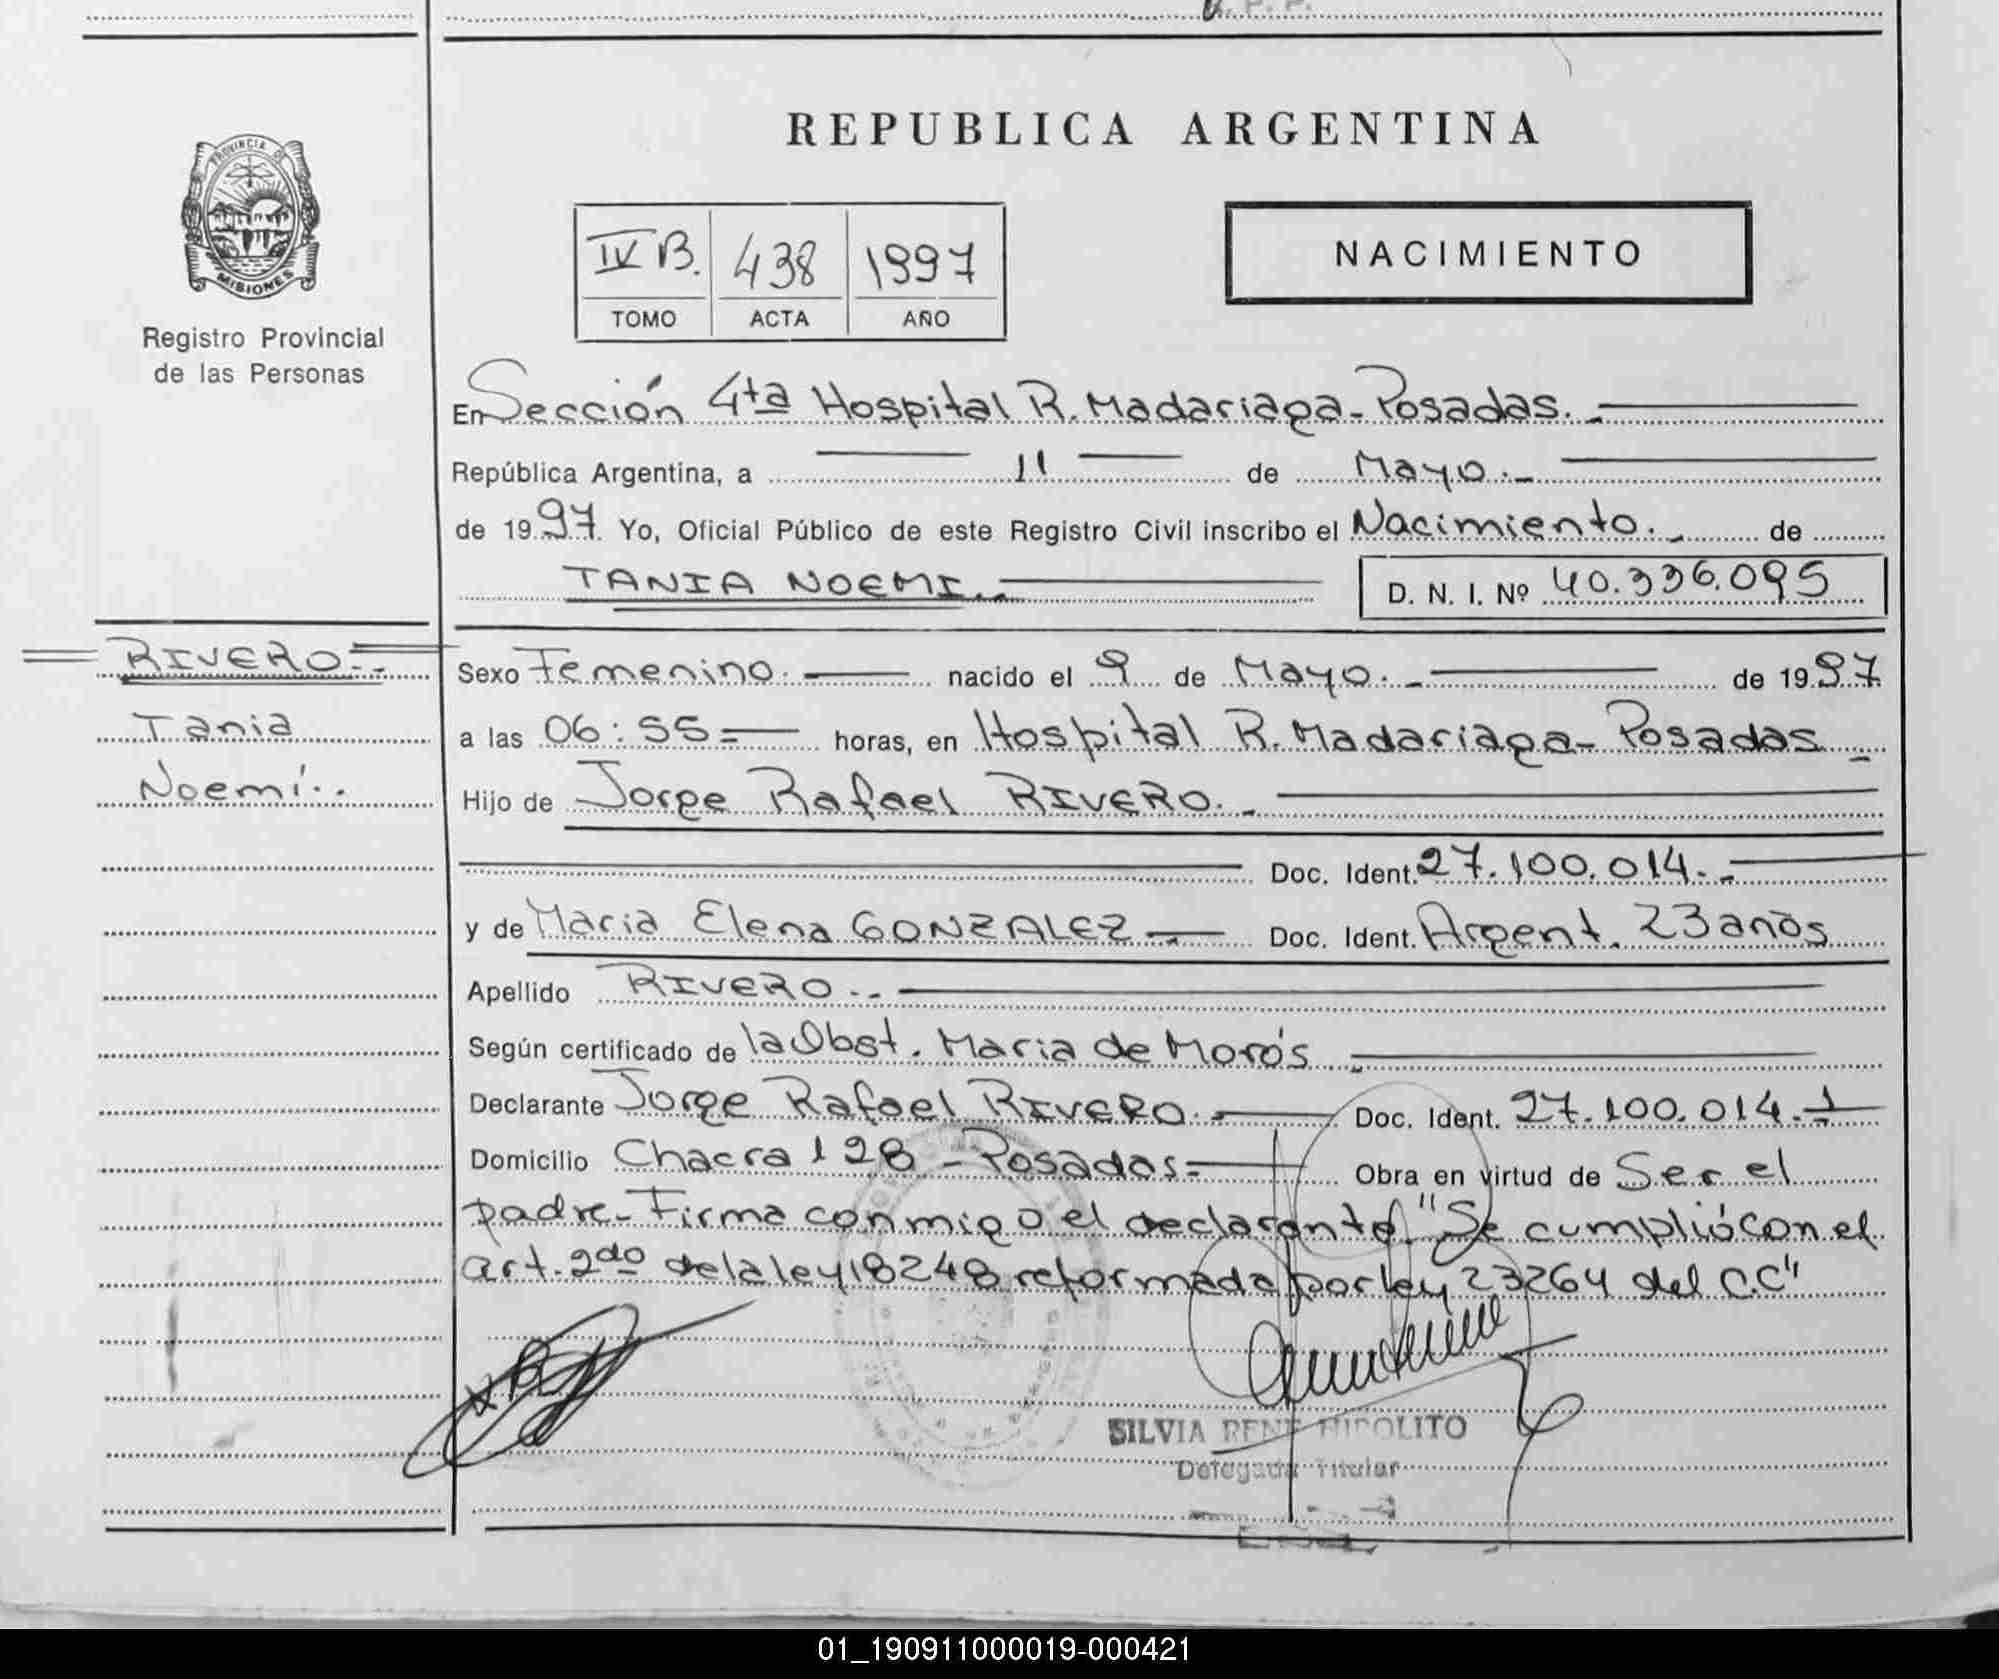 REPUBLICA ARGENTINA
PROVINCIA DE
MISIONES
Registro Provincial
de las Personas
IV B. 438 1997
TOMO ACTA AÑO
NACIMIENTO
En Sección 4ta Hospital R. Madariaga - Posadas.
República Argentina, a 11 de Mayo.
de 1997. Yo, Oficial Público de este Registro Civil inscribo el Nacimiento. de
TANIA NOEMI. D. N. I. Nº 40.336.095
RIVERO.
Tania
Noemí..
Sexo Femenino. nacido el 9 de Mayo. de 1997
a las 06:55= horas, en Hospital R. Madariaga - Posadas
Hijo de Jorge Rafael RIVERO.
Doc. Ident. 27.100.014.
y de Maria Elena GONZALEZ Doc. Ident. Argent. 23 años
Apellido RIVERO.
Según certificado de la Obst. Maria de Morós
Declarante Jorge Rafael RIVERO. Doc. Ident. 27.100.014.
Domicilio Chacra 128 - Posadas= Obra en virtud de Ser el
padre - Firma conmigo el declarante. "Se cumplió con el
art. 2do de la ley 18248 reformada por ley 23264 del C.C"
SILVIA HIPOLITO
Delegada Titular
01_190911000019-000421